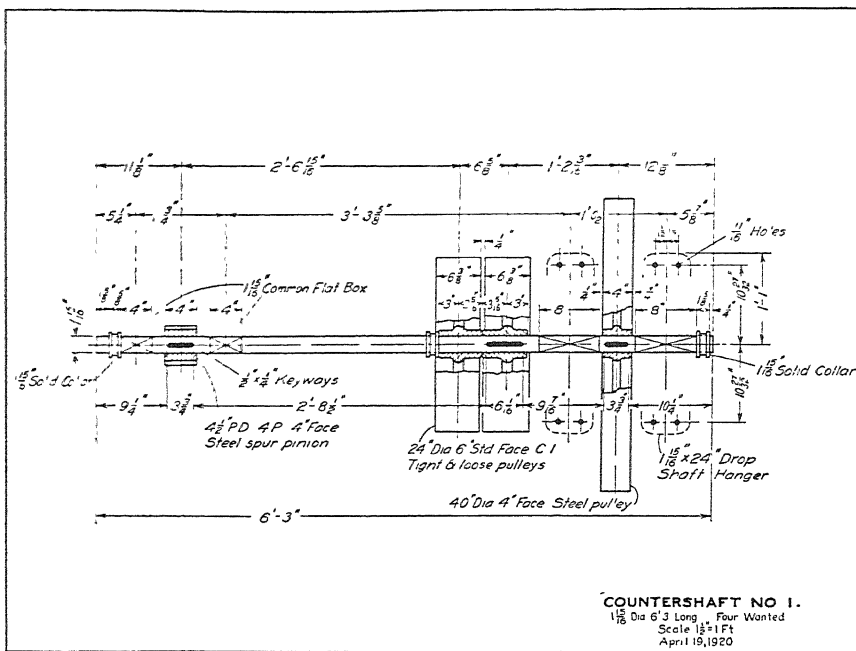 11 1/8" 2'-6 15/16" 6 5/8" 1'-2 3/16" 12 1/8"
5 1/4" 4 3/4" 3'-3 5/8" 5 7/8"
11/16" Holes
1/4"
6 3/8" 6 3/8"
1 15/16" Common Flat Box
4" 4" 4"
3" 3"
1/4" 4" 1/4"
8 8"
10 27/32" 1'-1"
1 15/16"
1/2" x 1/4" Keyways
1 15/16" Solid Collar
9 1/4" 3 3/4" 2'-8 1/2" 6 1/16" 9 7/16" 3 3/4" 10 1/4"
10 27/32"
4 1/2" PD 4P 4" Face
Steel spur pinion
24" Dia 6" Std Face C I
Tight & loose pulleys
1 15/16" x 24" Drop
Shaft Hanger
40" Dia 4" Face Steel pulley
6'-3"
COUNTERSHAFT NO 1.
1 15/16" Dia 6'3 Long Four Wanted
Scale 1 1/2"=1 Ft
April 19, 1920